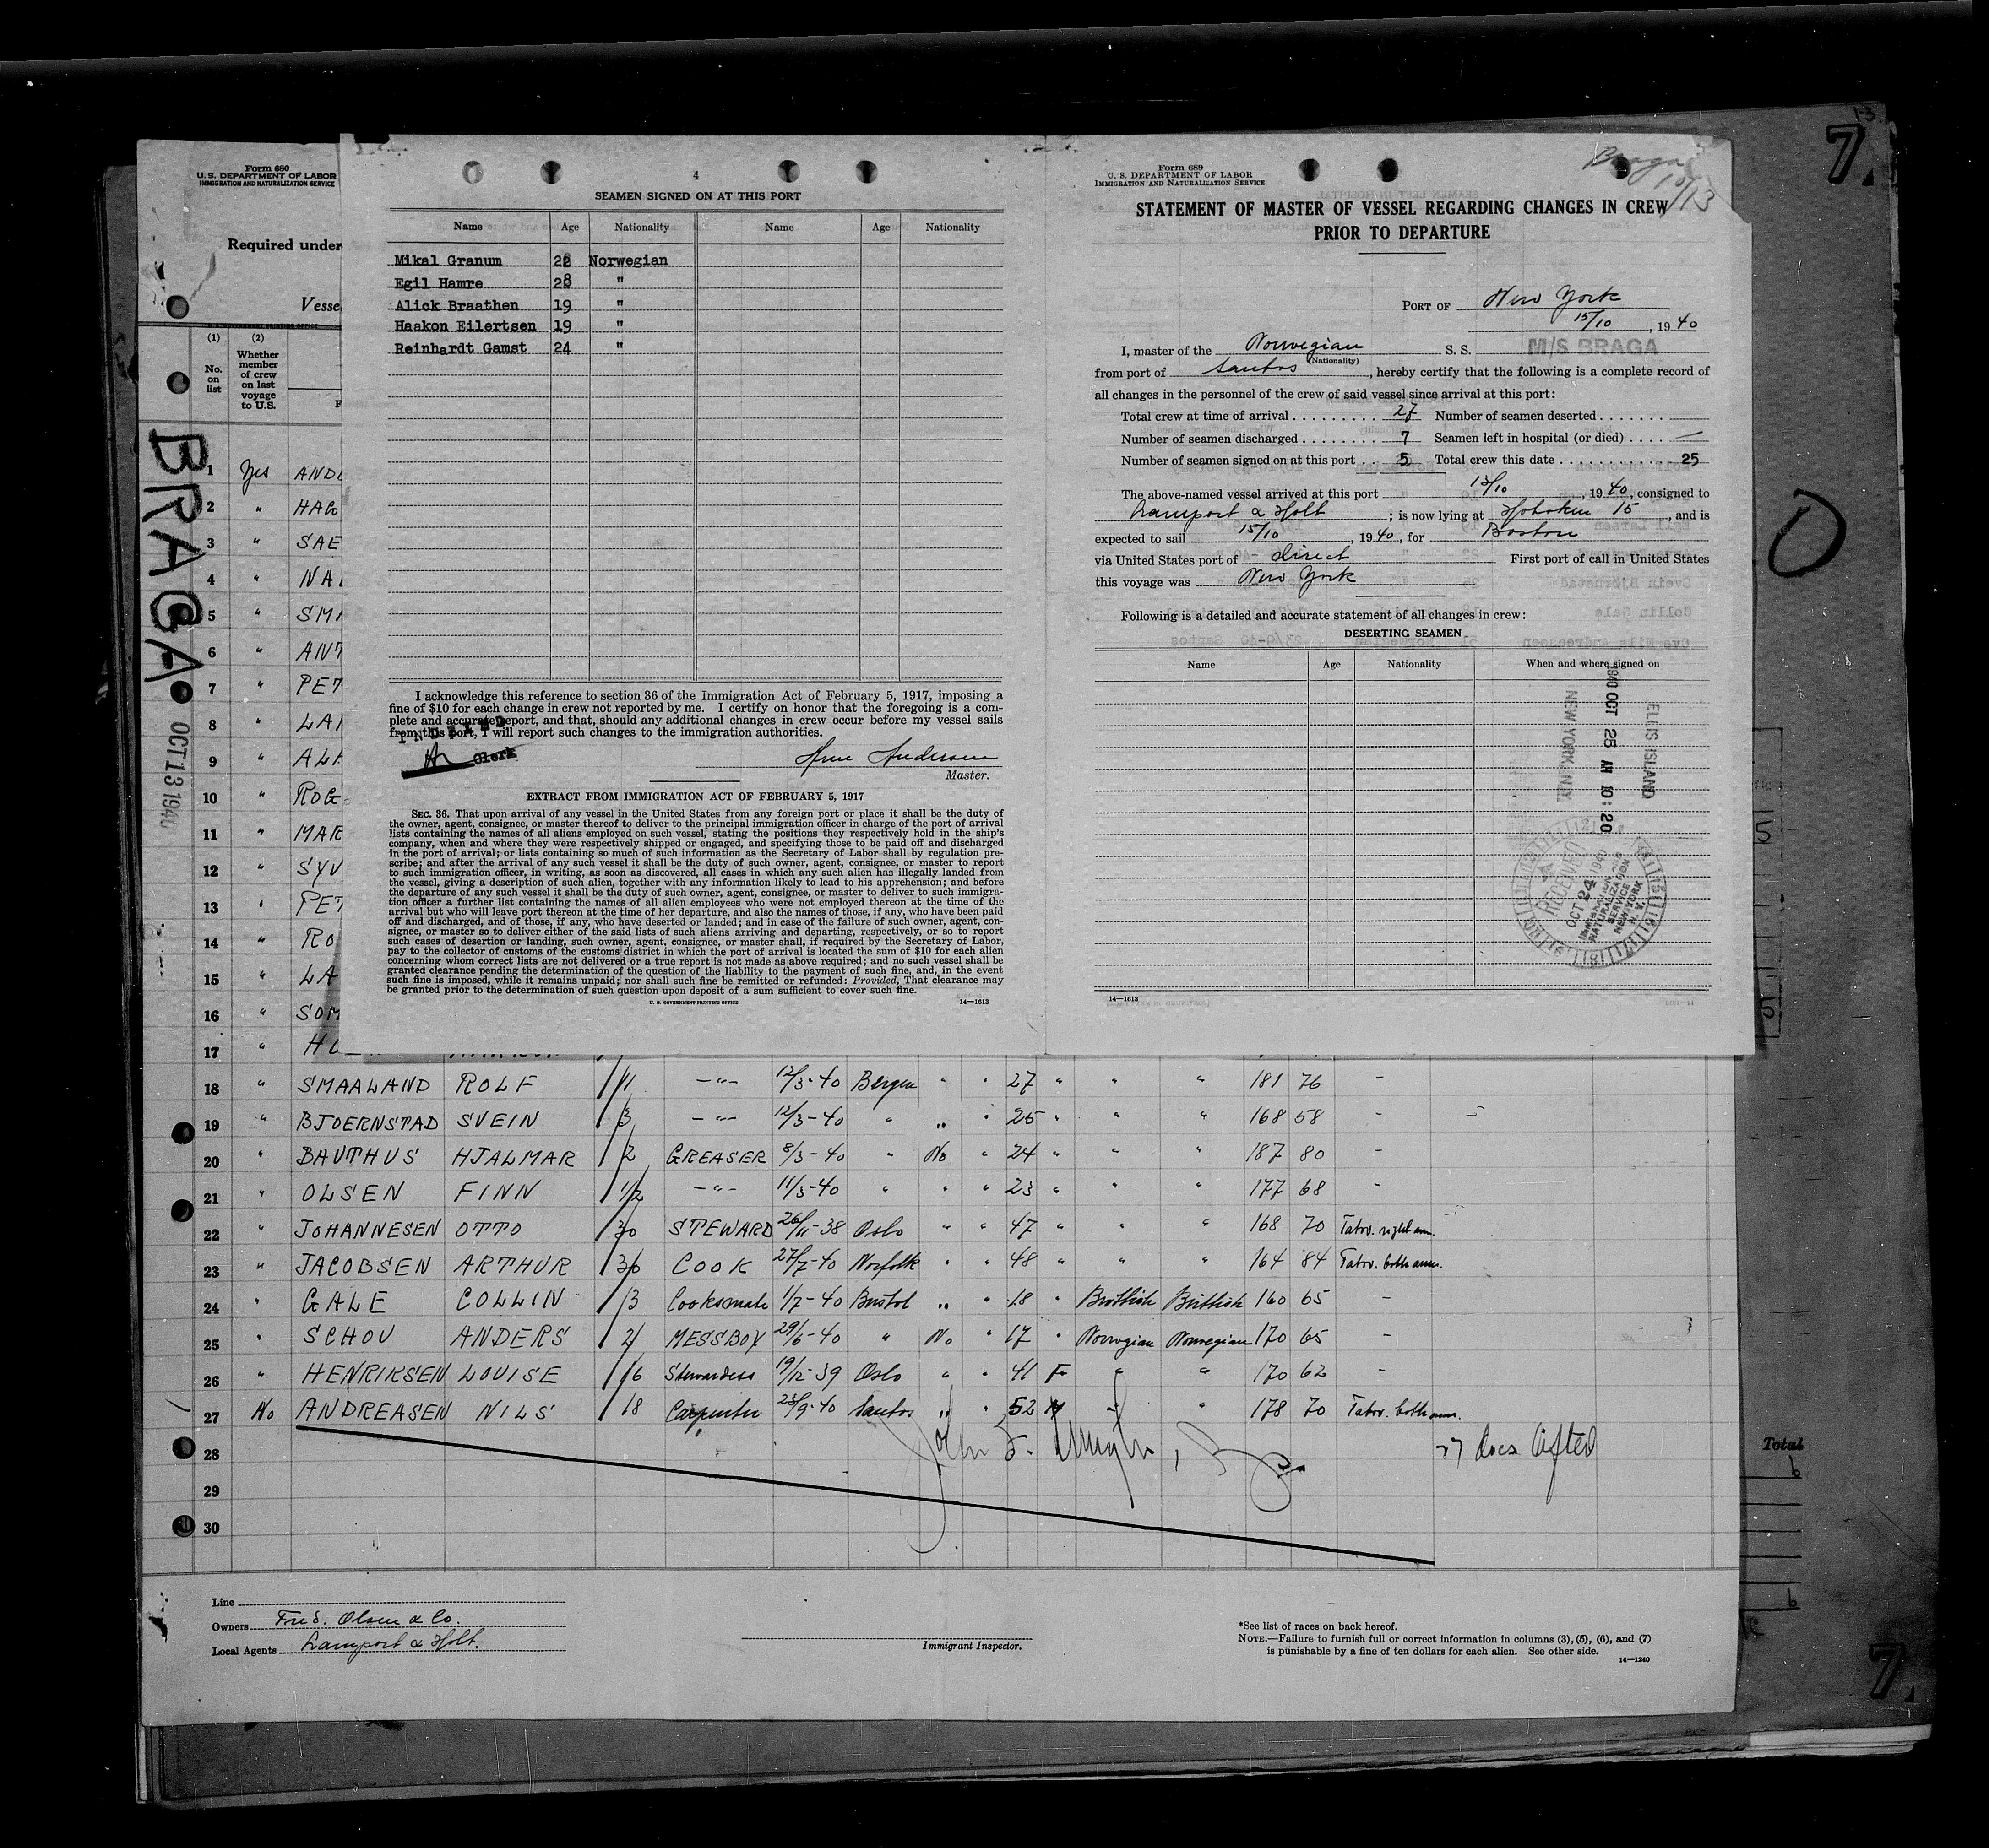 7.
Form 680
U. S. DEPARTMENT OF LABOR
IMMIGRATION AND NATURALIZATION SERVICE
Required under
Vesse
(1) (2)
No. on list
Whether member of crew on last voyage to U.S.
BRAGA
OCT 13 1940
1 Yes AND
2 " HAG
3 " SAE
4 " NA
5 " SM
6 " AN
7 " PET
8 " LA
9 " AL
10 " ROG
11 " MAR
12 " SYV
13 " PET
14 " RO
15 " LA
16 " SOM
17 "
4
SEAMEN SIGNED ON AT THIS PORT
Name Age Nationality Name Age Nationality
Mikal Granum 28 Norwegian
Egil Hamre 28 "
Alick Braathen 19 "
Haakon Eilertsen 19 "
Reinhardt Gamst 24 "
I acknowledge this reference to section 36 of the Immigration Act of February 5, 1917, imposing a
fine of $10 for each change in crew not reported by me. I certify on honor that the foregoing is a com-
plete and accurate report, and that, should any additional changes in crew occur before my vessel sails
from this port, I will report such changes to the immigration authorities.
INDEXED
Clerk
Arne Andersen
Master.
EXTRACT FROM IMMIGRATION ACT OF FEBRUARY 5, 1917
SEC. 36. That upon arrival of any vessel in the United States from any foreign port or place it shall be the duty of
the owner, agent, consignee, or master thereof to deliver to the principal immigration officer in charge of the port of arrival
lists containing the names of all aliens employed on such vessel, stating the positions they respectively hold in the ship's
company, when and where they were respectively shipped or engaged, and specifying those to be paid off and discharged
in the port of arrival; or lists containing so much of such information as the Secretary of Labor shall by regulation pre-
scribe; and after the arrival of any such vessel it shall be the duty of such owner, agent, consignee, or master to report
to such immigration officer, in writing, as soon as discovered, all cases in which any such alien has illegally landed from
the vessel, giving a description of such alien, together with any information likely to lead to his apprehension; and before
the departure of any such vessel it shall be the duty of such owner, agent, consignee, or master to deliver to such immigra-
tion officer a further list containing the names of all alien employees who were not employed thereon at the time of the
arrival but who will leave port thereon at the time of her departure, and also the names of those, if any, who have been paid
off and discharged, and of those, if any, who have deserted or landed; and in case of the failure of such owner, agent, con-
signee, or master so to deliver either of the said lists of such aliens arriving and departing, respectively, or so to report
such cases of desertion or landing, such owner, agent, consignee, or master shall, if required by the Secretary of Labor,
pay to the collector of customs of the customs district in which the port of arrival is located the sum of $10 for each alien
concerning whom correct lists are not delivered or a true report is not made as above required; and no such vessel shall be
granted clearance pending the determination of the question of the liability to the payment of such fine, and, in the event
such fine is imposed, while it remains unpaid; nor shall such fine be remitted or refunded: Provided, That clearance may
be granted prior to the determination of such question upon deposit of a sum sufficient to cover such fine.
U. S. GOVERNMENT PRINTING OFFICE 14—1613
Form 689
U. S. DEPARTMENT OF LABOR
IMMIGRATION AND NATURALIZATION SERVICE
Braga
10/13
STATEMENT OF MASTER OF VESSEL REGARDING CHANGES IN CREW
PRIOR TO DEPARTURE
PORT OF New York
15/10, 1940
I, master of the Norwegian S. S. M/S BRAGA
(Nationality)
from port of Santos, hereby certify that the following is a complete record of
all changes in the personnel of the crew of said vessel since arrival at this port:
Total crew at time of arrival 27 Number of seamen deserted
Number of seamen discharged 7 Seamen left in hospital (or died) —
Number of seamen signed on at this port 5 Total crew this date 25
The above-named vessel arrived at this port 13/10, 1940, consigned to
Lamport & Holt; is now lying at Hoboken 15, and is
expected to sail 15/10, 1940, for Boston
via United States port of direct First port of call in United States
this voyage was New York
Following is a detailed and accurate statement of all changes in crew:
DESERTING SEAMEN
Name Age Nationality When and where signed on
ELLIS ISLAND
1940 OCT 25 AM 10:20
NEW YORK, N.Y.
RECEIVED
OCT 24 1940
IMMIGRATION AND
NATURALIZATION
SERVICE
NEW YORK
N. Y.
14—1613
18 " SMAALAND ROLF 11 -"- 12/3-40 Bergen " " 27 " " " 181 76 -
19 " BJOERNSTAD SVEIN 3 -"- 12/3-40 " " " 25 " " " 168 58 -
20 " BAUTHUS HJALMAR 2 GREASER 8/3-40 " No " 24 " " " 187 80 -
21 " OLSEN FINN 1/2 -"- 11/3-40 " " " 23 " " " 177 68 -
22 " JOHANNESEN OTTO 30 STEWARD 26/11-38 Oslo " " 47 " " " 168 70 Tatov. right arm.
23 " JACOBSEN ARTHUR 30 COOK 27/7-40 Norfolk " " 48 " " " 164 84 Tatov. both arms.
24 " GALE COLLIN 3 Cooksmate 1/7-40 Bristol " " 18 " Brittish Brittish 160 65 -
25 " SCHOU ANDERS 2 MESSBOY 29/6-40 " No " 17 " Norwegian Norwegian 170 65 -
26 " HENRIKSEN LOUISE 16 Stewardess 19/12-39 Oslo " " 41 F " " 170 62 -
27 No ANDREASEN NILS 18 Carpenter 23/9-40 Santos " " 52 M " " 178 70 Tatov. both arms.
28
29
30
27 docs lifted
Total
6
6
Line
Owners Fred. Olsen & Co.
Local Agents Lamport & Holt.
Immigrant Inspector.
*See list of races on back hereof.
NOTE.—Failure to furnish full or correct information in columns (3), (5), (6), and (7)
is punishable by a fine of ten dollars for each alien. See other side.
14—1240
7.